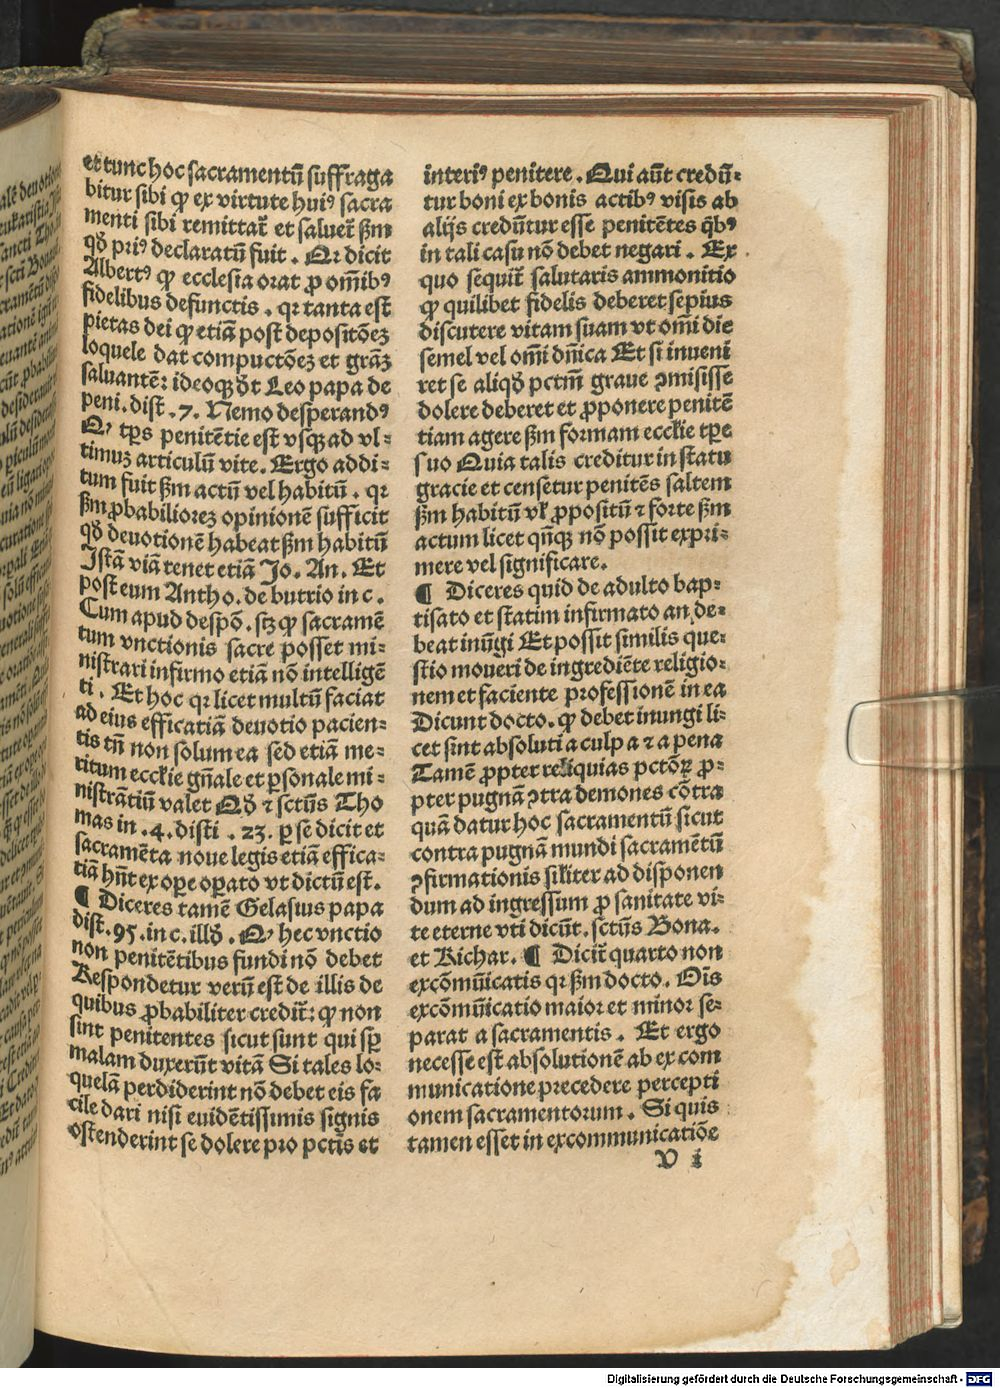 et tunc hoc sacramentū suffraga
bitur sibi ꝙ ex virtute huiꝰ sacra
menti sibi remittat᷑ et saluet᷑ ẜm
qď priꝰ declaratū fuit . Qꝛ dicit
Albertꝰ ꝙ ecclesia orat ꝓ om̄ibꝰ
fidelibus defunctis . qꝛ tanta est
pietas dei ꝙ etiā post depositōeꝫ
loquele dat compuctōeꝫ et grāꝫ
saluantē: ideoqꝫ ďt Leo papa de
peni . dist .7. Nemo desperandꝰ
Qꝛ tp̄s penitētie est vsqꝫ ad vl⸗
timuꝫ articulū vite . Ergo addi⸗
tum fuit ẜm actū vel habitū . qꝛ
ẜm ꝓbabilioreꝫ opinionē sufficit
qď deuotionē habeat ẜm habitū
Istā viā tenet etiā Jo. An. Et
post eum Antho. de butrio in c.
Cum apud despō. scꝫ ꝙ sacramē
tum vnctionis sacre posset mi⸗
nistrari infirmo etiā nō intelligē
ti . Et hoc qꝛ licet multū faciat
ad eius efficatiā deuotio pacien⸗
tis tn̄ non solum ea sed etiā me⸗
ritum eccłie gn̄ale et ꝑsonale mi⸗
nistrātiū valet Qď ⁊ sctūs Tho
mas in .4. disti . 23. ꝑ se dicit et
sacramēta noue legis etiā effica⸗
tiā hn̄t ex oꝑe oꝑato vt dictū est .
¶ Diceres tamē Gelasius papa
dist. 95. in c. illď . Qꝛ hec vnctio
non penitētibus fundi nō debet
Respondetur verū est de illis de
quibus ꝓbabiliter credit᷑: ꝙ non
sint penitentes sicut sunt qui sꝑ
malam duxerūt vitā Si tales lo⸗
quelā perdiderint nō debet eis fa
cile dari nisi euidētissimis signis
ostenderint se dolere pro pctīs et
interiꝰ penitere . Qui aūt credū⸗
tur boni ex bonis actibꝰ visis ab
alijs credūtur esse penitētes qͥbꝰ
in tali casu nō debet negari . Ex
quo sequit᷑ salutaris ammonitio
ꝙ quilibet fidelis deberet sepius
discutere vitam suam vt om̄i die
semel vel om̄i dn̄ica Et si inueni
ret se aliqď pctm̄ graue ꝯmisisse
dolere deberet et ꝓponere penitē
tiam agere ẜm formam eccłie tꝑe
suo Quia talis creditur in statu
gracie et censetur penitēs saltem
ẜm habitū vł ꝓpositū ⁊ forte ẜm
actum licet qn̄qꝫ nō possit expri⸗
mere vel significare .
¶ Diceres quid de adulto bap⸗
tisato et statim infirmato an de⸗
beat inūgi Et possit similis que⸗
stio moueri de ingrediēte religio⸗
nem et faciente professionē in ea
Dicunt docto. ꝙ debet inungi li⸗
cet sint absoluti a culpa ⁊ a pena
Tamē ꝓpter reliquias pctōꝝ ꝓ⸗
pter pugnā ꝯtra demones cōtra
quā datur hoc sacramentū sicut
contra pugnā mundi sacramētū
ꝯfirmationis siłiter ad disponen
dum ad ingressum ꝓ sanitate vi⸗
te eterne vti dicūt . sctūs Bona.
et Richar. ¶ Dicit᷑ quarto non
excōmūicatis qꝛ ẜm docto. Oīs
excōmūicatio maior et minor se⸗
parat a sacramentis . Et ergo
necesse est absolutionē ab excom
municatione precedere percepti
onem sacramentorum . Si quis
tamen esset in excommunicatiōe
V i
Digitalisierung gefördert durch die Deutsche Forschungsgemeinschaft - DFG